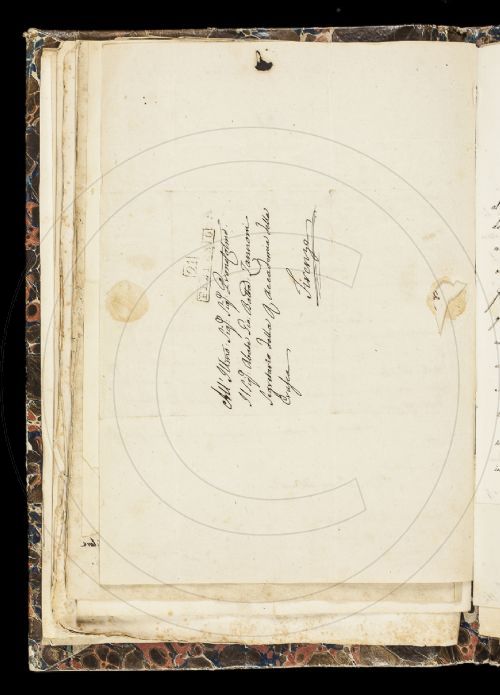 All' Illmo Sigr Sigr Pron Colmo
Il Sigr Abate Gio. Batta Zannoni
Segretario della R. Accademia della
Crusca
Firenze